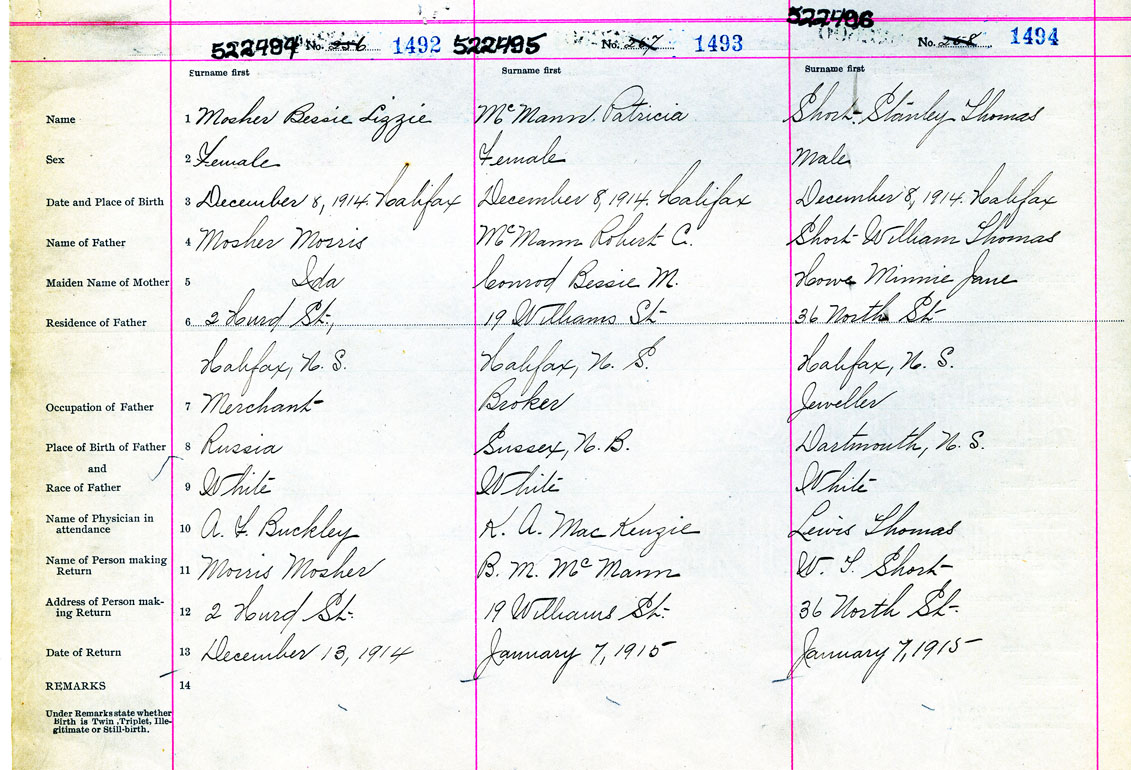 522496
522494 No. 256 1492 522495 No. 267 1493 No. 268 1494
Surname first Surname first Surname first
Name 1 Mosher Bessie Lizzie McMann Patricia Short Stanley Thomas
Sex 2 Female Female Male
Date and Place of Birth 3 December 8, 1914. Halifax December 8, 1914. Halifax December 8, 1914. Halifax
Name of Father 4 Mosher Morris McMann Robert C. Short William Thomas
Maiden Name of Mother 5 Ida Conrod Bessie M. Howe Minnie Jane
Residence of Father 6 2 Hurd St., 19 Williams St 36 North St
Halifax, N. S. Halifax, N. S. Halifax, N. S.
Occupation of Father 7 Merchant Broker Jeweller
Place of Birth of Father 8 Russia Sussex, N. B. Dartmouth, N. S.
and
Race of Father 9 White White White
Name of Physician in
attendance 10 A. F. Buckley K. A. MacKenzie Lewis Thomas
Name of Person making
Return 11 Morris Mosher B. M. McMann W. T. Short
Address of Person mak-
ing Return 12 2 Hurd St. 19 Williams St. 36 North St.
Date of Return 13 December 13, 1914 January 7, 1915 January 7, 1915
REMARKS 14
Under Remarks state whether
Birth is Twin, Triplet, Ille-
gitimate or Still-birth.